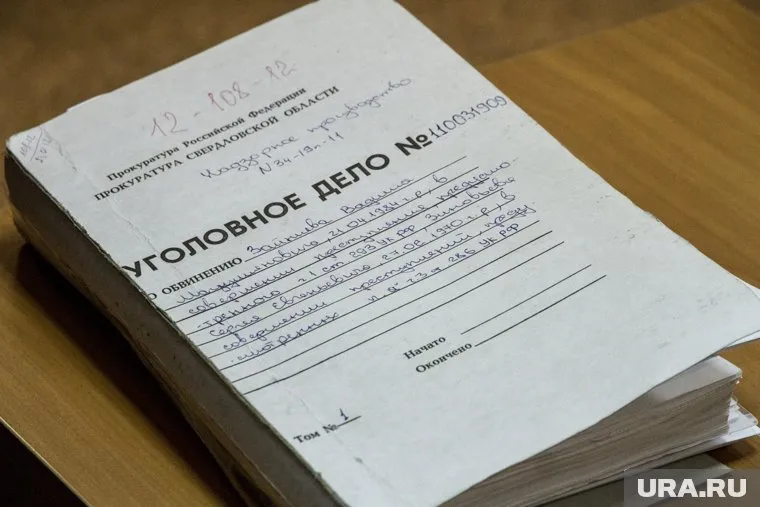 12-108-12
Прокуратура Российской Федерации
ПРОКУРАТУРА СВЕРДЛОВСКОЙ ОБЛАСТИ
Надзорное производство
N34-19п-11
УГОЛОВНОЕ ДЕЛО № 110031909
ПО ОБВИНЕНИЮ Зайцева Вадима
21.04.1984 г.р., в
совершении преступления предусмо-
-тренного ч.1 ст. 293 УК РФ, Зиновьева
Сергея Евгеньевича 27.08.1970 г.р., в
совершении преступлений, преду-
-смотренных п. а ч.3 ст 286 УК РФ
Начато
Окончено
Том № 1
URA.RU